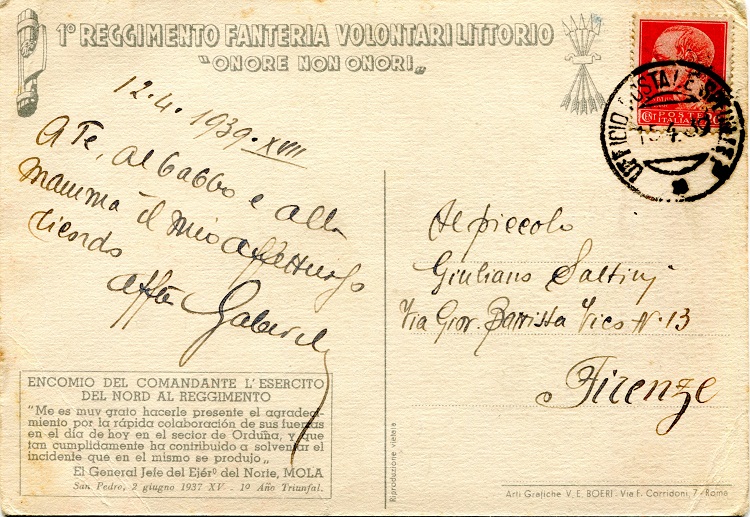 1° REGGIMENTO FANTERIA VOLONTARI LITTORIO
"ONORE NON ONORI"
12.4.1939.XVII
A Te, al babbo e alla
mamma il mio affettuoso
ricordo
aff.
ENCOMIO DEL COMANDANTE L'ESERCITO
DEL NORD AL REGGIMENTO
"Me es muy grato hacerle presente el agradeci-
miento por la rápida colaboración de sus fuerzas
en el día de hoy en el sector de Orduña, y que
tan cumplidamente ha contribuido a solventar el
incidente que en el mismo se produjo„
El General Jefe del Ejér° del Norte, MOLA
San Pedro, 2 giugno 1937 XV - 1º Año Triunfal.
Riproduzione vietata
POSTE
ITALIANE
UFFICIO POSTALE SPECIALE
15.4.39
Al piccolo
Giuliano Saltini
Via Giov. Battista Vico N. 13
Firenze
Arti Grafiche V. E. BOERI - Via F. Corridoni, 7 - Roma